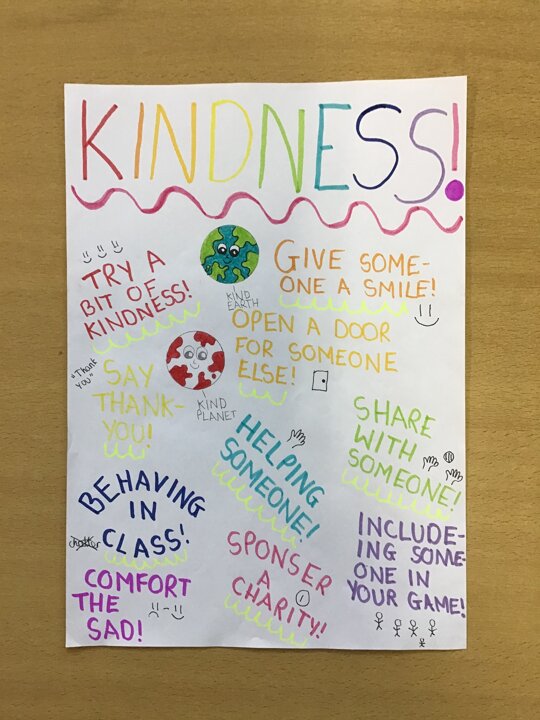 KINDNESS!
TRY A
BIT OF
KINDNESS!
KIND
EARTH
GIVE SOME-
ONE A SMILE!
OPEN A DOOR
FOR SOMEONE
ELSE!
"Thank
You"
SAY
THANK-
YOU!
KIND
PLANET
HELPING
SOMEONE!
SHARE
WITH
SOMEONE!
BEHAVING
IN
CLASS!
SPONSER
A
CHARITY!
INCLUDE-
ING SOME-
ONE IN
YOUR GAME!
COMFORT
THE
SAD!